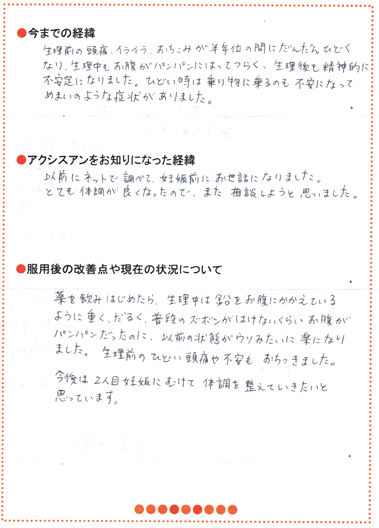 ●今までの経緯
生理前の頭痛、イライラ、おちこみが半年位の間にだんだんひどく
なり、生理中もお腹がパンパンにはってつらく、生理後も精神的に
不安定になりました。ひどい時は乗り物に乗るのも不安になって
めまいのような症状がありました。
●アクシスアンをお知りになった経緯
以前にネットで調べて、妊娠前にお世話になりました。
とても体調が良くなったので、また相談しようと思いました。
●服用後の改善点や現在の状況について
薬を飲みはじめたら、生理中は鉛をお腹にかかえている
ように重く、だるく、普段のズボンがはけないくらいお腹が
パンパンだったのに、以前の状態がウソみたいに楽になり
ました。生理前のひどい頭痛や不安もおちつきました。
今後は2人目妊娠にむけて体調を整えていきたいと
思っています。